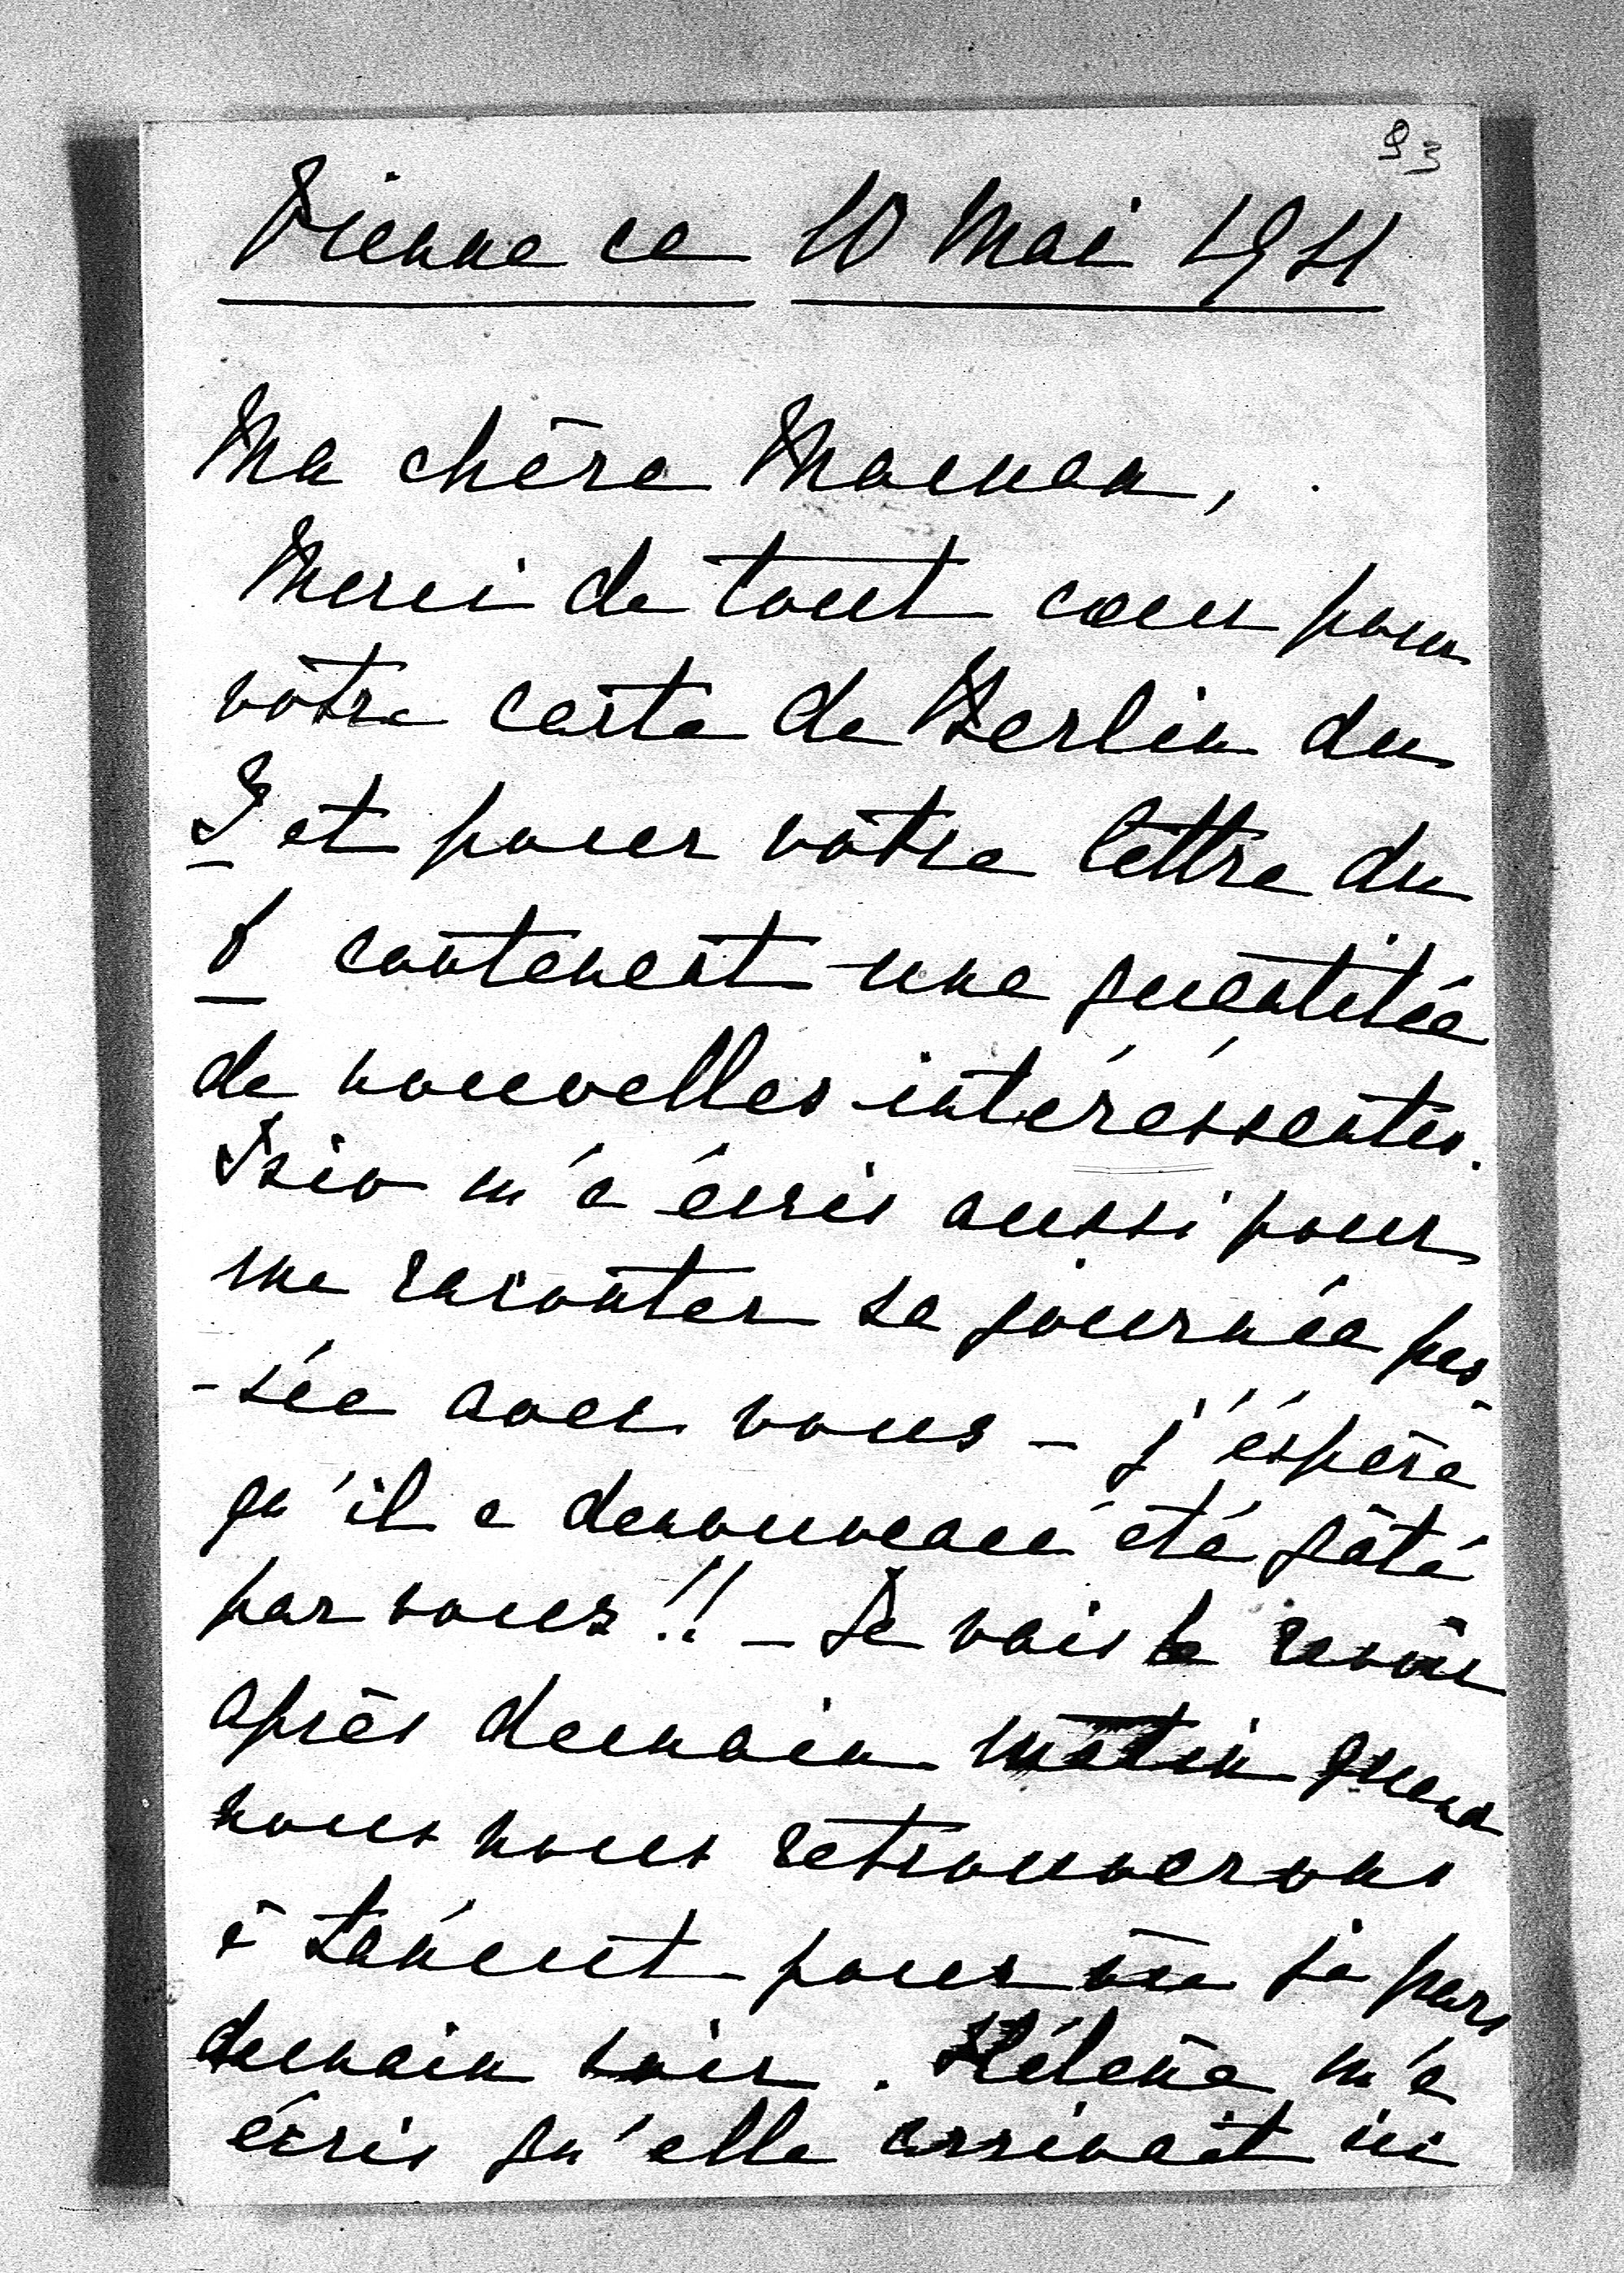 93
Vienne ce 10 Mai 1911
Ma chère Maman,
Merci de tout cœur pour
vôtre carte de Berlin du
5 et pour vôtre lettre du
8 contenant une quantitée
de nouvelles intéréssantes.
m'a écris aussi pour
me raconter sa journée pas-
-sée avec vous – j'éspère
qu'il a denouveau été gâté
par vous!! – Je vais le revoir
après demain matin quand
nous nous retrouverons
à pour je pars
demain soir. Hélène m'a
écris qu'elle arrivait ici